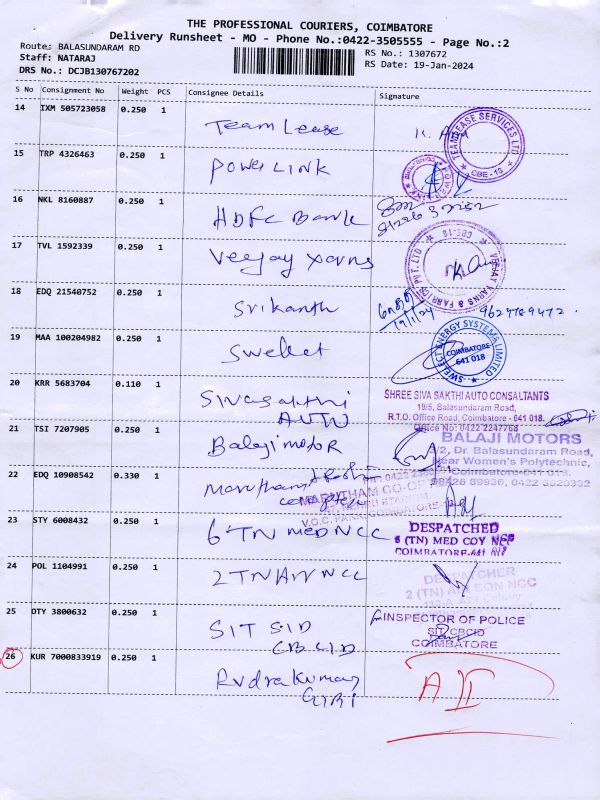 THE PROFESSIONAL COURIERS, COIMBATORE
Delivery Runsheet - MO - Phone No.:0422-3505555 - Page No.:2
Route: BALASUNDARAM RD
Staff: NATARAJ
DRS No.: DCJB130767202
RS No.: 1307672
RS Date: 19-Jan-2024
S No Consignment No Weight PCS Consignee Details Signature
14 IXM 505723058 0.250 1
Team Lease
TEAMLEASE SERVICES LTD
CBE-18
15 TRP 4326463 0.250 1
POWER LINK
16 NKL 8160887 0.250 1
HDFC Bank
17 TVL 1592339 0.250 1
Veejay Yarns
VEEJAY YARNS & FABRICS PVT. LTD
CBE-18
18 EDQ 21540752 0.250 1
Srikanth
19/1/24
9627789472.
19 MAA 100204982 0.250 1
Swelect
SWELECT ENERGY SYSTEMS LIMITED
COIMBATORE
641 018
20 KRR 5683704 0.110 1
Sivasakthi
AUTO
SHREE SIVA SAKTHI AUTO CONSULTANTS
19/5, Balasundaram Road,
R.T.O. Office Road, Coimbatore - 641 018.
Office No: 0422 2247768
21 TSI 7207905 0.250 1
Balaji motor
BALAJI MOTORS
Dr. Balasundaram Road,
Near Women's Polytechnic,
Coimbatore-641 018.
22 EDQ 10908542 0.330 1
23 STY 6008432 0.250 1
6 TN MED NCC
DESPATCHED
6 (TN) MED COY NCC
COIMBATORE-641
24 POL 1104991 0.250 1
2 TN AIR NCC
DESPATCHER
2 (TN) AIR SQN NCC
25 OTY 3800632 0.250 1
SIT SID
CB CID
INSPECTOR OF POLICE
SIT CBCID
COIMBATORE
26 KUR 7000833919 0.250 1
Rudrakumar
GIRI
A II